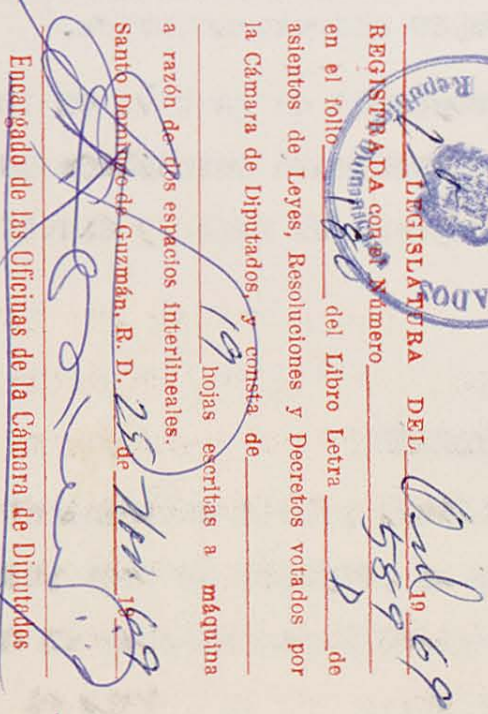 República Dominicana
ADOS
1a LEGISLATURA DEL Ord. 19 69
REGISTRADA con el Número 589
en el folio 180 del Libro Letra D de
asientos de Leyes, Resoluciones y Decretos votados por
la Cámara de Diputados, y consta de
19 hojas escritas a máquina
a razón de dos espacios interlineales.
Santo Domingo de Guzmán, R. D. 25 de 19 69
Encargado de las Oficinas de la Cámara de Diputados